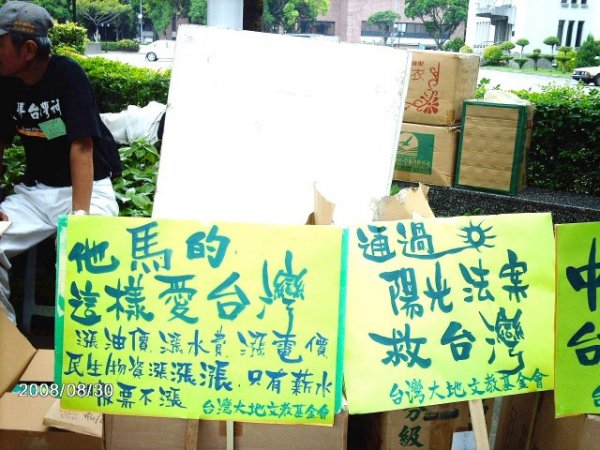 台灣
他馬的
這樣愛台灣
漲油價.漲水費.漲電價
民生物資漲漲漲.只有薪水
股票不漲
台灣大地文教基金會
通過
陽光法案
救台灣
台灣大地文教基金會
中
台
分級
2008/08/30